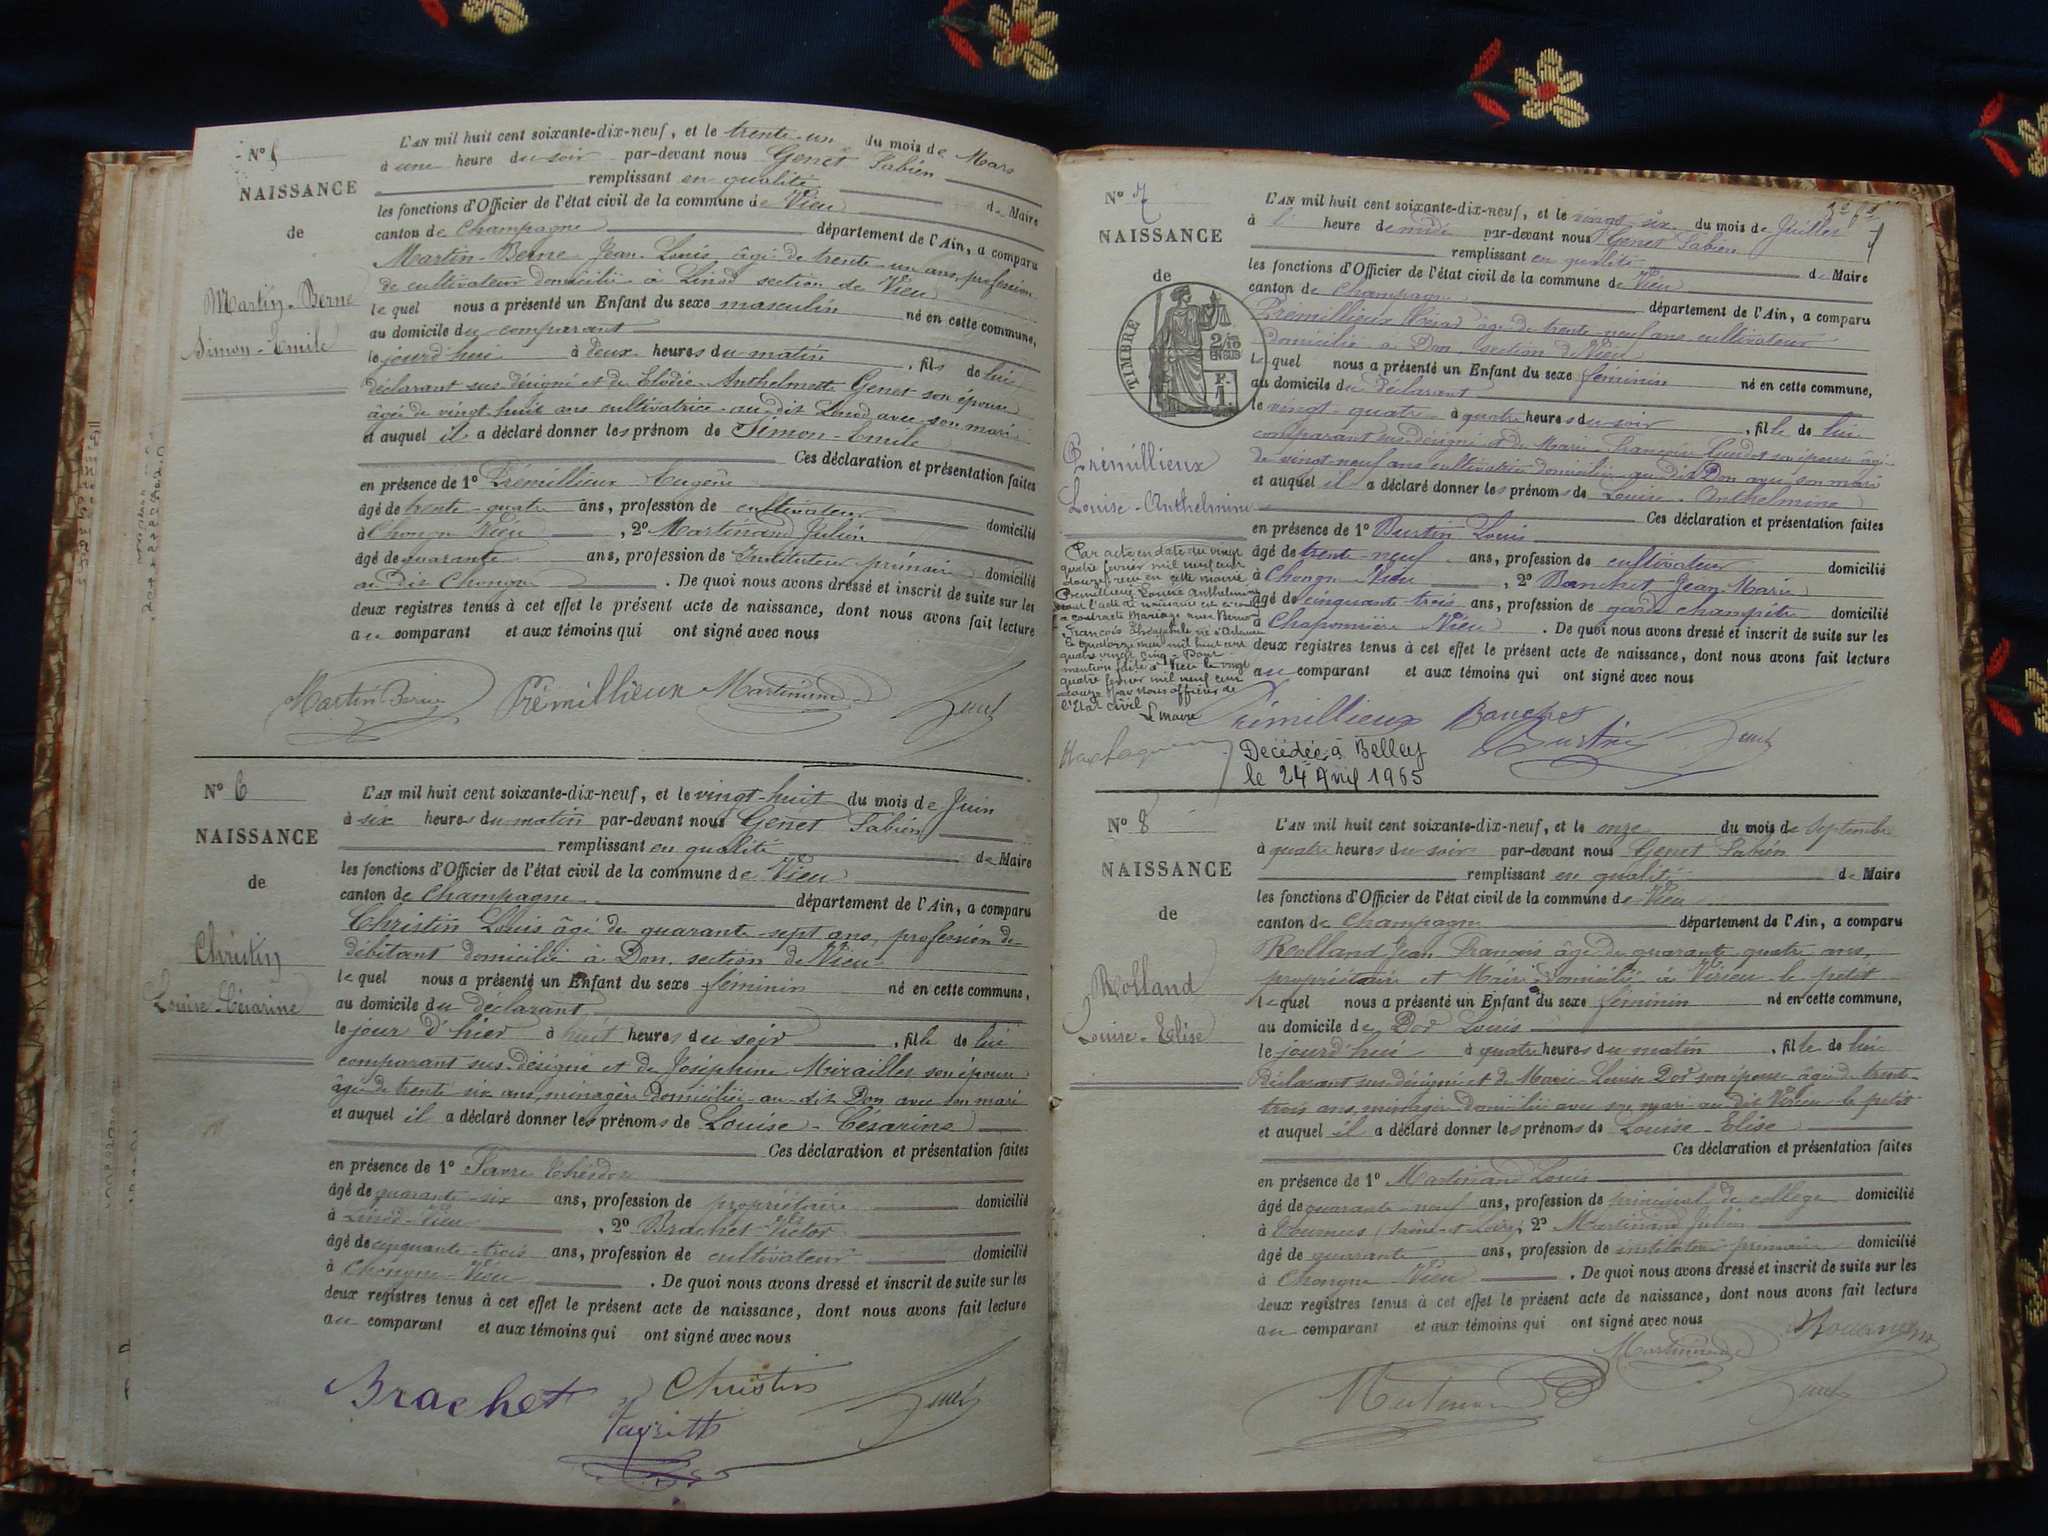 N° 5
NAISSANCE
de
Martin-Berne
Simon-Emile
L'AN mil huit cent soixante-dix-neuf, et le trente-un du mois de Mars
à une heure du soir par-devant nous Genet Fabien
remplissant en qualité
les fonctions d'Officier de l'état civil de la commune de Vieu de Maire
canton de Champagne département de l'Ain, a comparu
Martin-Berne Jean Louis âgé de trente-un ans, profession
de cultivateur domicilié à Linod section de Vieu
lequel nous a présenté un Enfant du sexe masculin né en cette commune,
au domicile du comparant
le jourd'hui à deux heures du matin, fils de lui
déclarant sus désigné et de Elodie Anthelmette Genet son épouse
âgée de vingt-huit ans cultivatrice au dit Linod avec son mari
et auquel il a déclaré donner les prénom de Simon-Emile
Ces déclaration et présentation faites
en présence de 1° Prémillieux Eugène
âgé de trente-quatre ans, profession de cultivateur domicilié
à Chongne Vieu, 2° Martinand Julien
âgé de quarante ans, profession de Instituteur primaire domicilié
au dit Chongne. De quoi nous avons dressé et inscrit de suite sur les
deux registres tenus à cet effet le présent acte de naissance, dont nous avons fait lecture
au comparant et aux témoins qui ont signé avec nous
Martin Berne Prémillieux Martinand Genet
N° 6
NAISSANCE
de
Christin
Louise-Césarine
L'AN mil huit cent soixante-dix-neuf, et le vingt-huit du mois de Juin
à six heures du matin par-devant nous Genet Fabien
remplissant en qualité de Maire
les fonctions d'Officier de l'état civil de la commune de Vieu
canton de Champagne département de l'Ain, a comparu
Christin Louis âgé de quarante-sept ans, profession de
débitant domicilié à Don, section de Vieu
lequel nous a présenté un Enfant du sexe féminin né en cette commune,
au domicile du déclarant
le jour d'hier à huit heures du soir, fille de lui
comparant sus-désigné et de Joséphine Mirailles son épouse
âgée de trente six ans, ménagère domiciliée au dit Don avec son mari
et auquel il a déclaré donner les prénoms de Louise-Césarine
Ces déclaration et présentation faites
en présence de 1° Favre Théodor
âgé de quarante-six ans, profession de propriétaire domicilié
à Linod-Vieu, 2° Brachet Victor
âgé de cinquante-trois ans, profession de cultivateur domicilié
à Chongne-Vieu. De quoi nous avons dressé et inscrit de suite sur les
deux registres tenus à cet effet le présent acte de naissance, dont nous avons fait lecture
au comparant et aux témoins qui ont signé avec nous
Brachet Christin Genet
N° 7
NAISSANCE
de
TIMBRE
2/10
EN SUS
F.
1.
Prémillieux
Louise-Anthelmine
Par acte en date du vingt
quatre février mil neuf cent
douze, reçu en cette mairie
Prémillieux Louise Anthelmine
dont l'acte de naissance est ci-contre
a contracté mariage avec
François
le quatorze mai mil huit cent
quatre vingt cinq - Pour
mention faite à Vieu le vingt
quatre février mil neuf cent
douze par nous officier de
l'Etat civil
Le Maire
L'AN mil huit cent soixante-dix-neuf, et le vingt-six du mois de Juillet
à l' heure de midi par-devant nous Genet Fabien
remplissant en qualité
les fonctions d'Officier de l'état civil de la commune de Vieu de Maire
canton de Champagne département de l'Ain, a comparu
Prémillieux âgé de trente-neuf ans cultivateur
domicilié à Don, section de Vieu
lequel nous a présenté un Enfant du sexe féminin né en cette commune,
au domicile du déclarant
le vingt-quatre à quatre heures du soir, fille de lui
comparant sus désigné et de Marie Françoise son épouse âgée
de vingt-neuf ans cultivatrice domiciliée au dit Don avec son mari
et auquel il a déclaré donner les prénoms de Louise-Anthelmine
Ces déclaration et présentation faites
en présence de 1° Bustin Louis
âgé de trente-neuf ans, profession de cultivateur domicilié
à Chongne Vieu, 2° Banchet Jean Marie
âgé de cinquante-trois ans, profession de garde champêtre domicilié
à Chaponnière Vieu. De quoi nous avons dressé et inscrit de suite sur les
deux registres tenus à cet effet le présent acte de naissance, dont nous avons fait lecture
au comparant et aux témoins qui ont signé avec nous
Prémillieux Banchet Bustin Genet
Décédée à Belley
le 24 Avril 1965
N° 8
NAISSANCE
de
Rolland
Louise-Elise
L'AN mil huit cent soixante-dix-neuf, et le onze du mois de Septembre
à quatre heures du soir par-devant nous Genet Fabien
remplissant en qualité de Maire
les fonctions d'Officier de l'état civil de la commune de Vieu
canton de Champagne département de l'Ain, a comparu
Rolland Jean François âgé de quarante quatre ans,
propriétaire et Maire domicilié à Virieu-le-petit
lequel nous a présenté un Enfant du sexe féminin né en cette commune,
au domicile de Dod Louis
le jourd'hui à quatre heures du matin, fille de lui
déclarant sus désigné et de Marie-Louise Dod son épouse âgée de trente-
trois ans, ménagère domiciliée avec son mari au dit Virieu-le-petit
et auquel il a déclaré donner les prénoms de Louise-Elise
Ces déclaration et présentation faites
en présence de 1° Martinand Louis
âgé de quarante-neuf ans, profession de principal de collège domicilié
à Tournus (Saône-et-Loire), 2° Martinand Julien
âgé de quarante ans, profession de instituteur primaire domicilié
à Chongne Vieu. De quoi nous avons dressé et inscrit de suite sur les
deux registres tenus à cet effet le présent acte de naissance, dont nous avons fait lecture
au comparant et aux témoins qui ont signé avec nous
Martinand
Genet